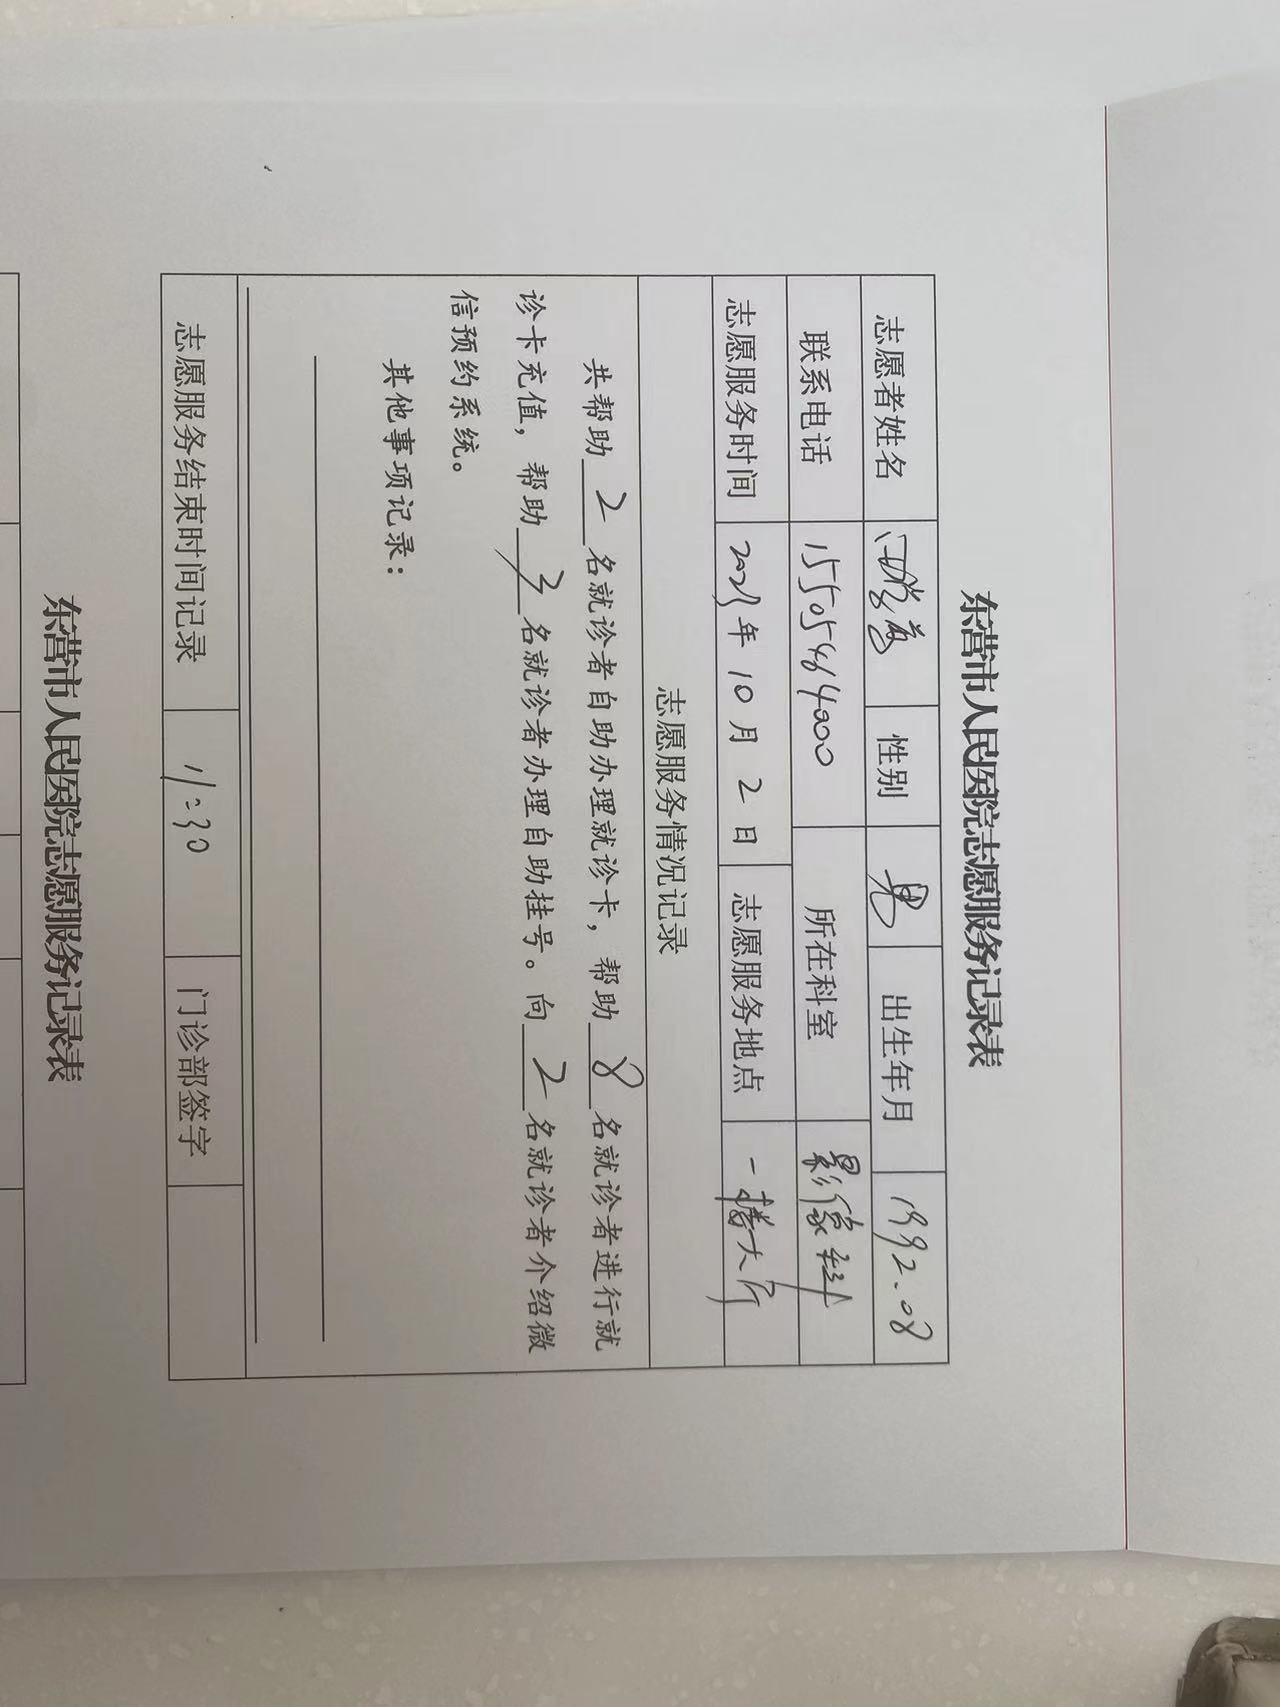 东营市人民医院志愿服务记录表
志愿者姓名 性别 男 出生年月 1992.08
联系电话 15505464000 所在科室 影像科
志愿服务时间 2023年 10月 2日 志愿服务地点 一楼大厅
志愿服务情况记录
共帮助 2 名就诊者自助办理就诊卡，帮助 8 名就诊者进行就
诊卡充值，帮助 3 名就诊者办理自助挂号。向 2 名就诊者介绍微
信预约系统。
其他事项记录：
志愿服务结束时间记录 11:30 门诊部签字
东营市人民医院志愿服务记录表